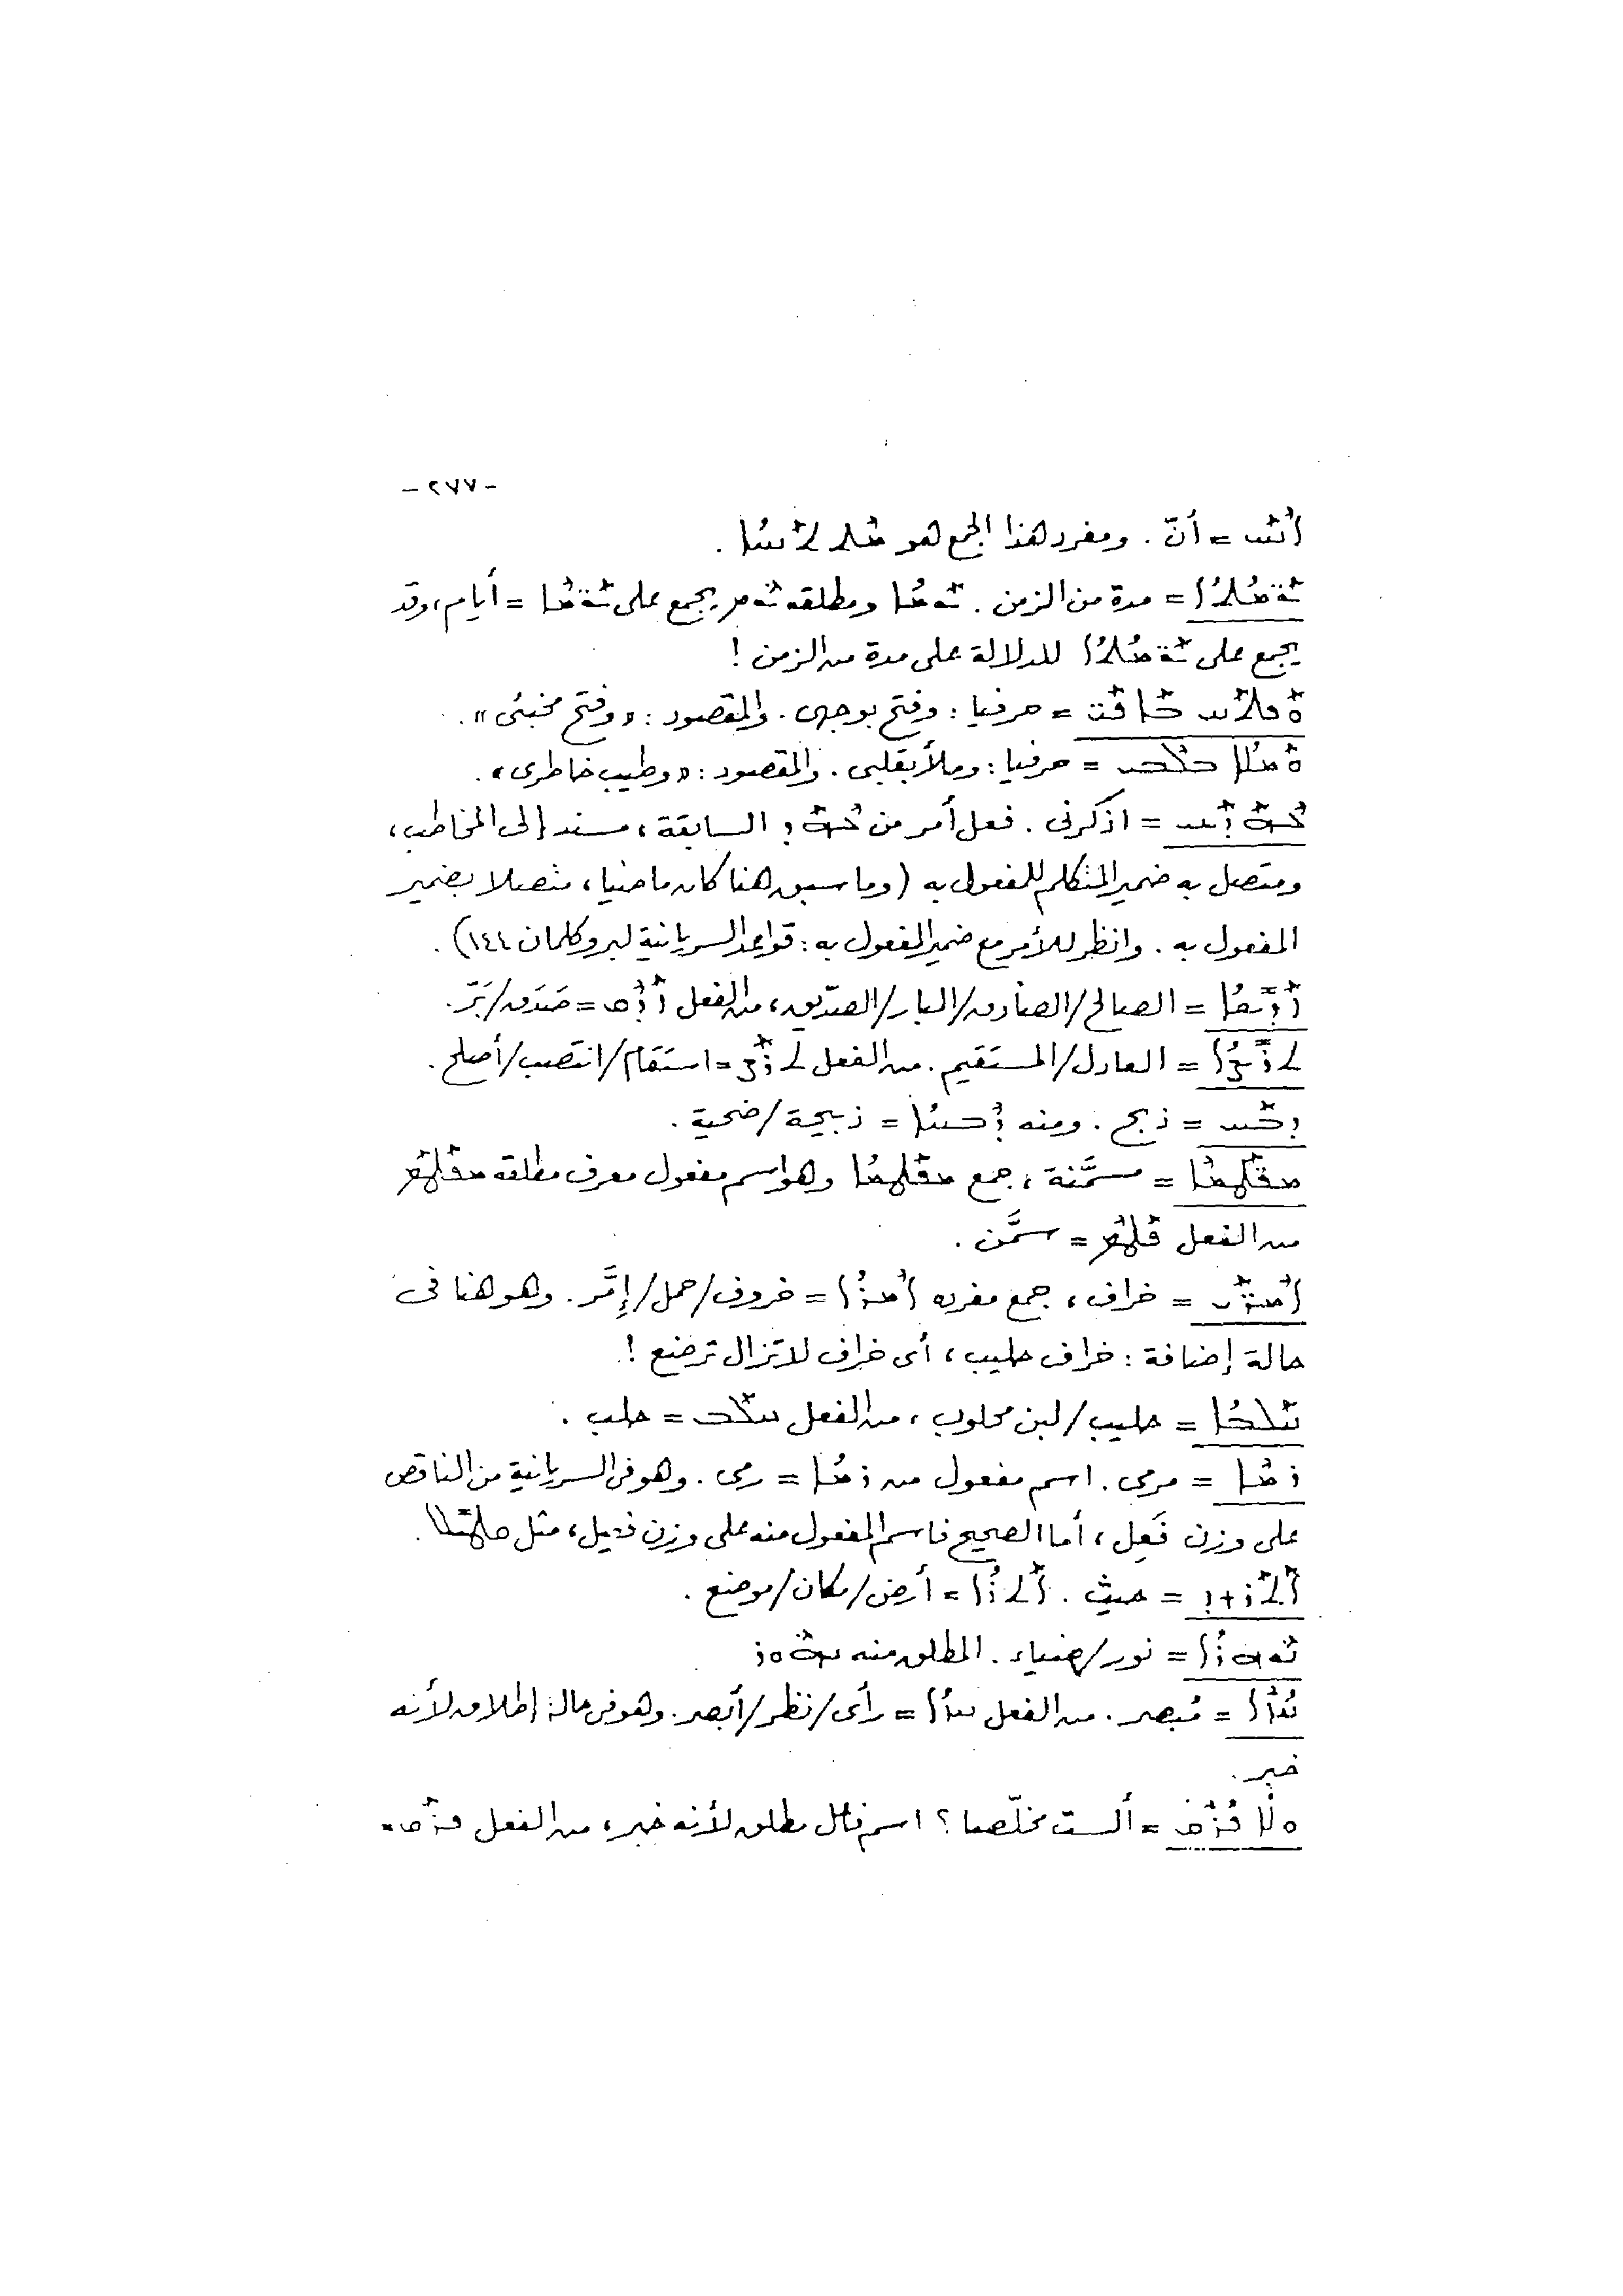 - ٢٧٧ -
ܐܢܚ = أنّ . ومفرد هذا الجمع هو
ܝܘܡܬܐ = مدة من الزمن . ܝܘܡܐ ومطلقه ܝܘܡ يجمع على ܝܘܡܐ = أيام، وقد
يجمع على ܝܘܡܬܐ للدلالة على مدة من الزمن !
ܘܦܬܚ ܒܐܦܝ = حرفيا : وفتح بوجهى . والمقصود : «وفتح مخبئى» .
ܘܡܠܐ ܒܠܒܝ = حرفيا : وملأ بقلبى . والمقصود : «وطيب خاطرى» .
= اذكرنى . فعل أمر من السابقة ، مسند إلى المخاطب ،
ومتصل به ضمير المتكلم للمفعول به (وما سبق هنا كان ماضيا ، متصلا بضمير
المفعول به . وانظر للأمر مع ضمير المفعول به : قواعد السريانية لبروكلمان ١٤٤) .
ܙܕܝܩܐ = الصالح/الصادق/البار/الصدّيق ، من الفعل ܙܕܩ = صَدَق/بَرّ .
ܬܪܝܨܐ = العادل/المستقيم . من الفعل ܬܪܨ = استقام/انتصب/أصلح .
ܕܒܚ = ذبح . ومنه ܕܒܚܐ = ذبيحة/ضحية .
ܡܦܛܡܐ = مسمَّنة ، جمع ܡܦܛܡܐ وهو اسم مفعول معرف مطلقه ܡܦܛܡ
من الفعل ܦܛܡ = سمَّن .
ܐܡܪܝ = خراف ، جمع مفرده ܐܡܪܐ = خروف/حمل/إمَّر . وهو هنا فى
حالة إضافة : خراف حليب ، أى خراف لا تزال ترضع !
ܚܠܒܐ = حليب/لبن محلوب ، من الفعل ܚܠܒ = حلب .
ܪܡܐ = مرمى . اسم مفعول من ܪܡܐ = رمى . وهو فى السريانية من الناقص
على وزن فَعِل ، أما الصحيح فاسم المفعول منه على وزن فعيل ، مثل ܩܛܝܠܐ .
ܐܬܪ + ܕ = حيث . ܐܬܪܐ = أرض/مكان/موضع .
ܢܘܗܪܐ = نور/ضياء . المطلق منه ܢܗܘܪ
ܚܙܐ = مُبصر . من الفعل ܚܙܐ = رأى/نظر/أبصر . وهو فى حالة إطلاق لأنه
خبر .
ܘܠܐ ܦܪܩ = ألست مخلّصا ؟ اسم فاعل مطلق لأنه خبر ، من الفعل ܦܪܩ =